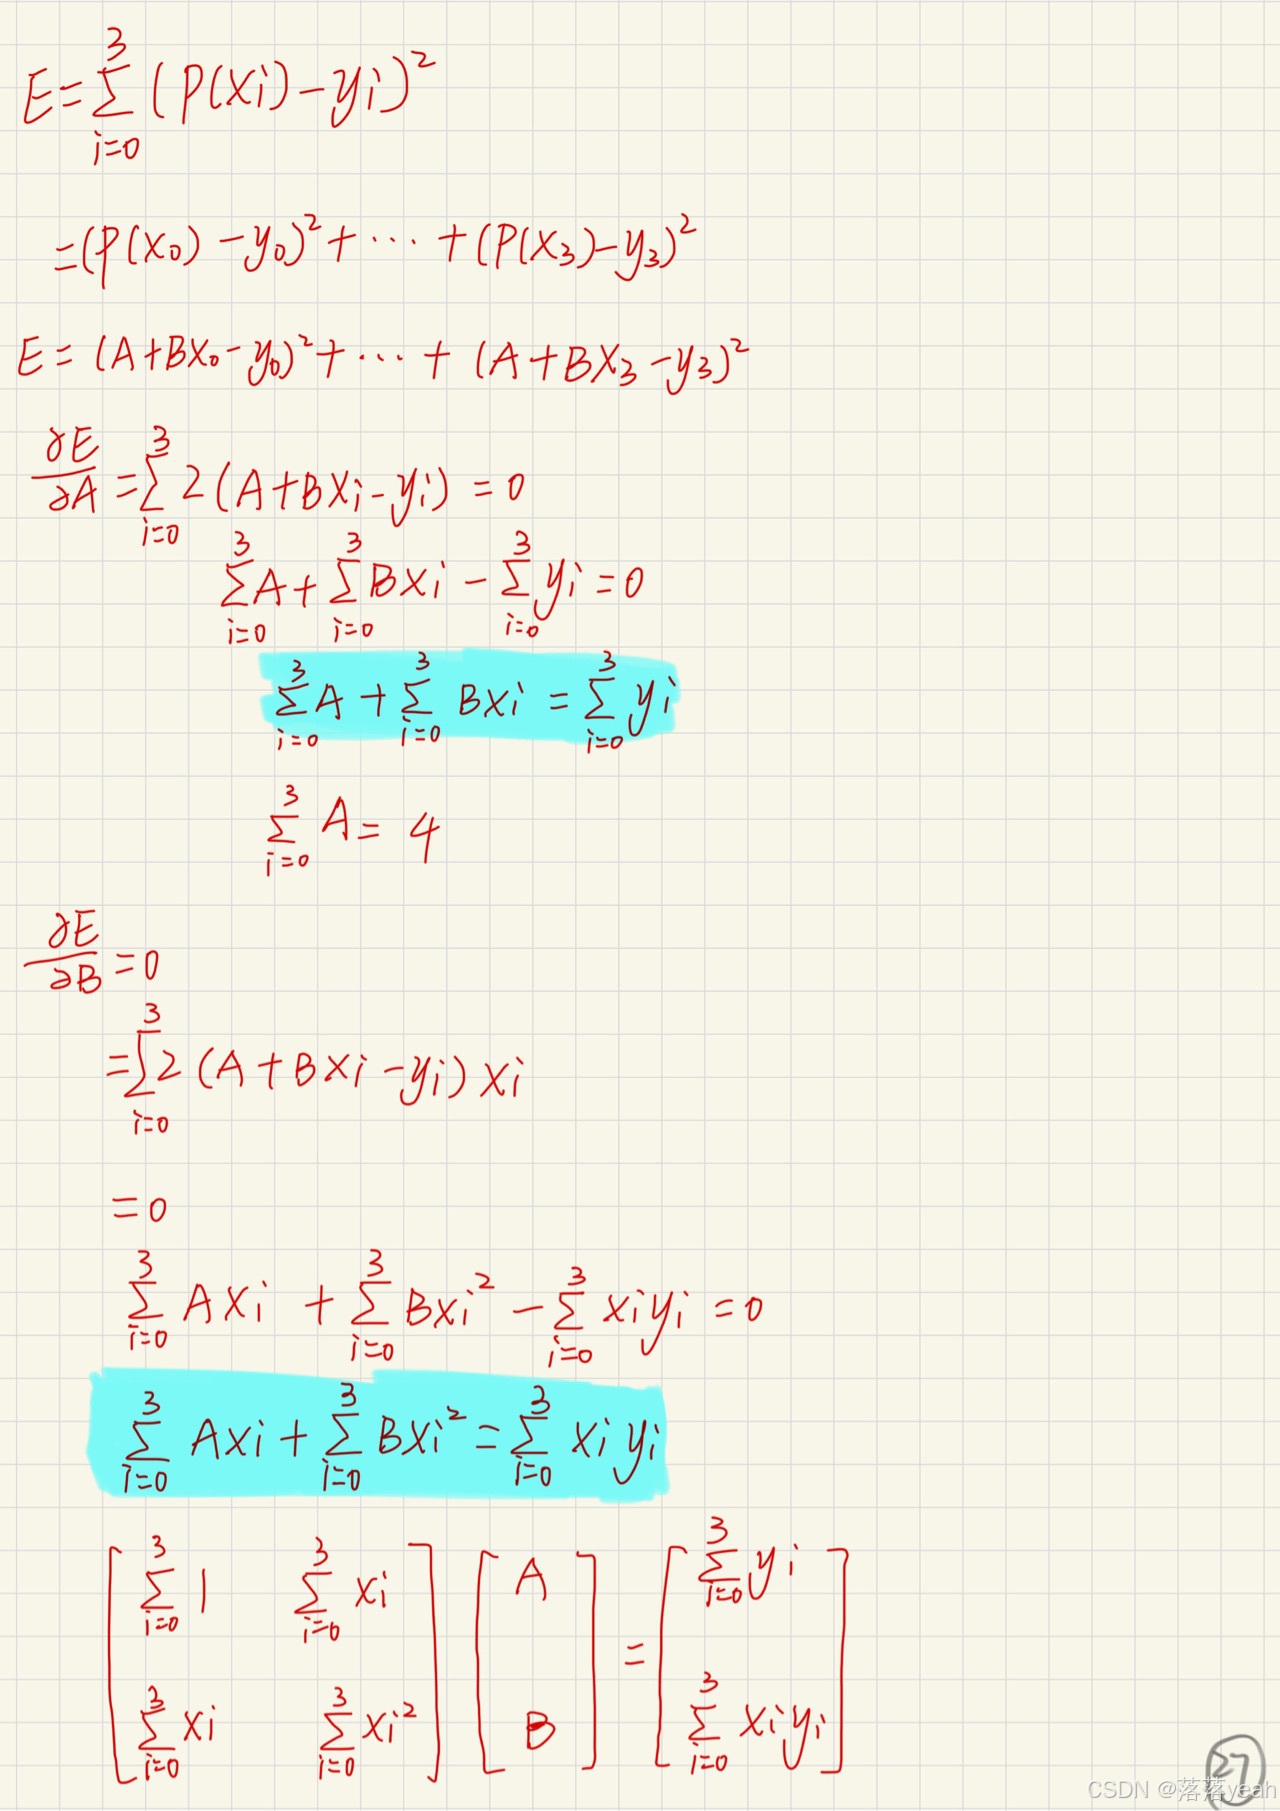 E=∑_{i=0}^{3}(P(xi)-yi)²
=(P(x₀)-y₀)²+⋯+(P(x₃)-y₃)²
E=(A+Bx₀-y₀)²+⋯+(A+Bx₃-y₃)²
∂E/∂A=∑_{i=0}^{3}2(A+Bxi-yi)=0
∑_{i=0}^{3}A+∑_{i=0}^{3}Bxi-∑_{i=0}^{3}yi=0
∑_{i=0}^{3}A+∑_{i=0}^{3}Bxi=∑_{i=0}^{3}yi
∑_{i=0}^{3}A=4
∂E/∂B=0
=∑_{i=0}^{3}2(A+Bxi-yi)xi
=0
∑_{i=0}^{3}Axi+∑_{i=0}^{3}Bxi²-∑_{i=0}^{3}xiyi=0
∑_{i=0}^{3}Axi+∑_{i=0}^{3}Bxi²=∑_{i=0}^{3}xiyi
[∑_{i=0}^{3}1 ∑_{i=0}^{3}xi] [A] = [∑_{i=0}^{3}yi]
[∑_{i=0}^{3}xi ∑_{i=0}^{3}xi²] [B] [∑_{i=0}^{3}xiyi]
CSDN @落落yeah